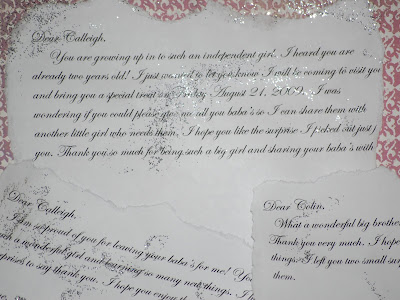 Dear Calleigh,
You are growing up in to such an independent girl. I heard you are
already two years old! I just wanted to let you know I will be coming to visit you
and bring you a special treat on Friday, August 21, 2009. I was
wondering if you could please give me all you baba's so I can share them with
another little girl who needs them. I hope you like the surprise I picked out just f
you. Thank you so much for being such a big girl and sharing your baba's with
Dear Calleigh,
I am so proud of you for leaving your baba's for me! You
a wonderful girl and learning so many new things. I h
surprises to say thank you. I hope you enjoy th
Dear Colin,
What a wonderful big brother
Thank you very much. I hope
things. I left you two small sur
them.